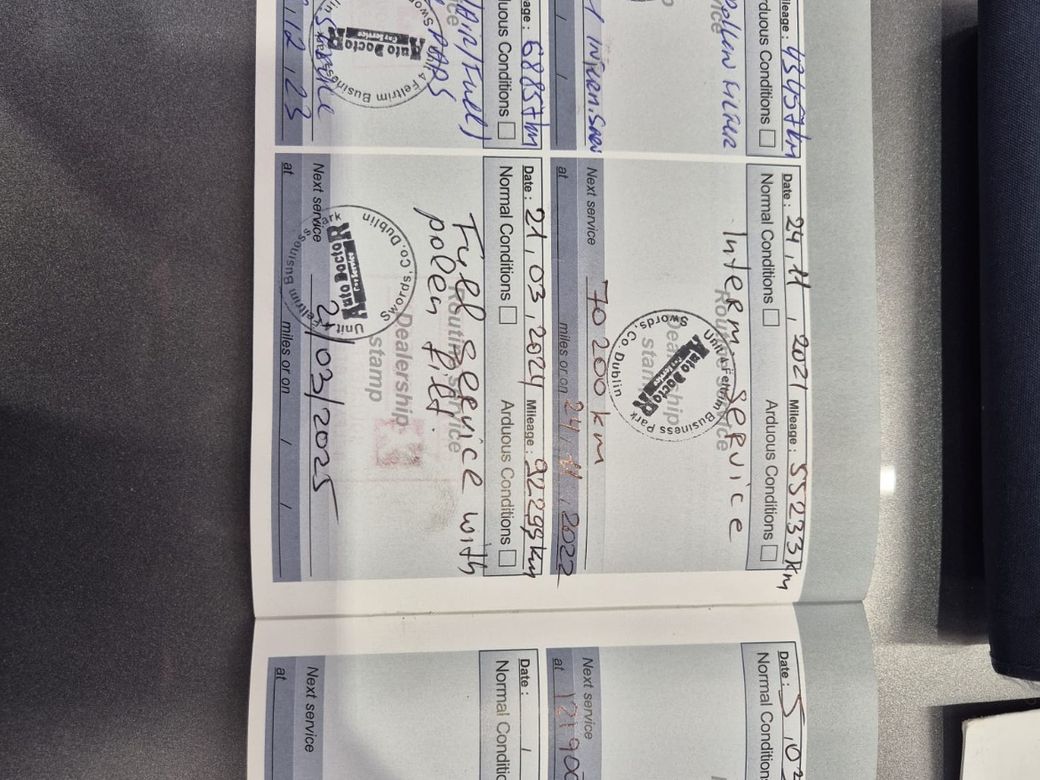 Mileage : 43457km
Arduous Conditions
Pollen Filter
Date : 24, 11, 2021 Mileage : 55233km
Normal Conditions Arduous Conditions
Interm. Service
Routine service
Dealership
stamp
Auto DoctoR
Car Service
Unit 4 Feltrim Business Park
Swords, Co. Dublin
Next service 70 200 km
at miles or on 24, 11, 2022
Mileage : 68857km
Arduous Conditions
Auto DoctoR
Car Service
Unit 4 Feltrim Business
Date : 21, 03, 2024 Mileage : 92299km
Normal Conditions Arduous Conditions
Full Service with
polen filt.
Routine service
Dealership
stamp
Auto DoctoR
Car Service
Unit 4 Feltrim Business Park
Swords, Co. Dublin
Next service 21/03/2025
at miles or on / /
Date : 5, 03
Normal Conditions
Next service
at
Date : /
Normal Conditions
Next service
at